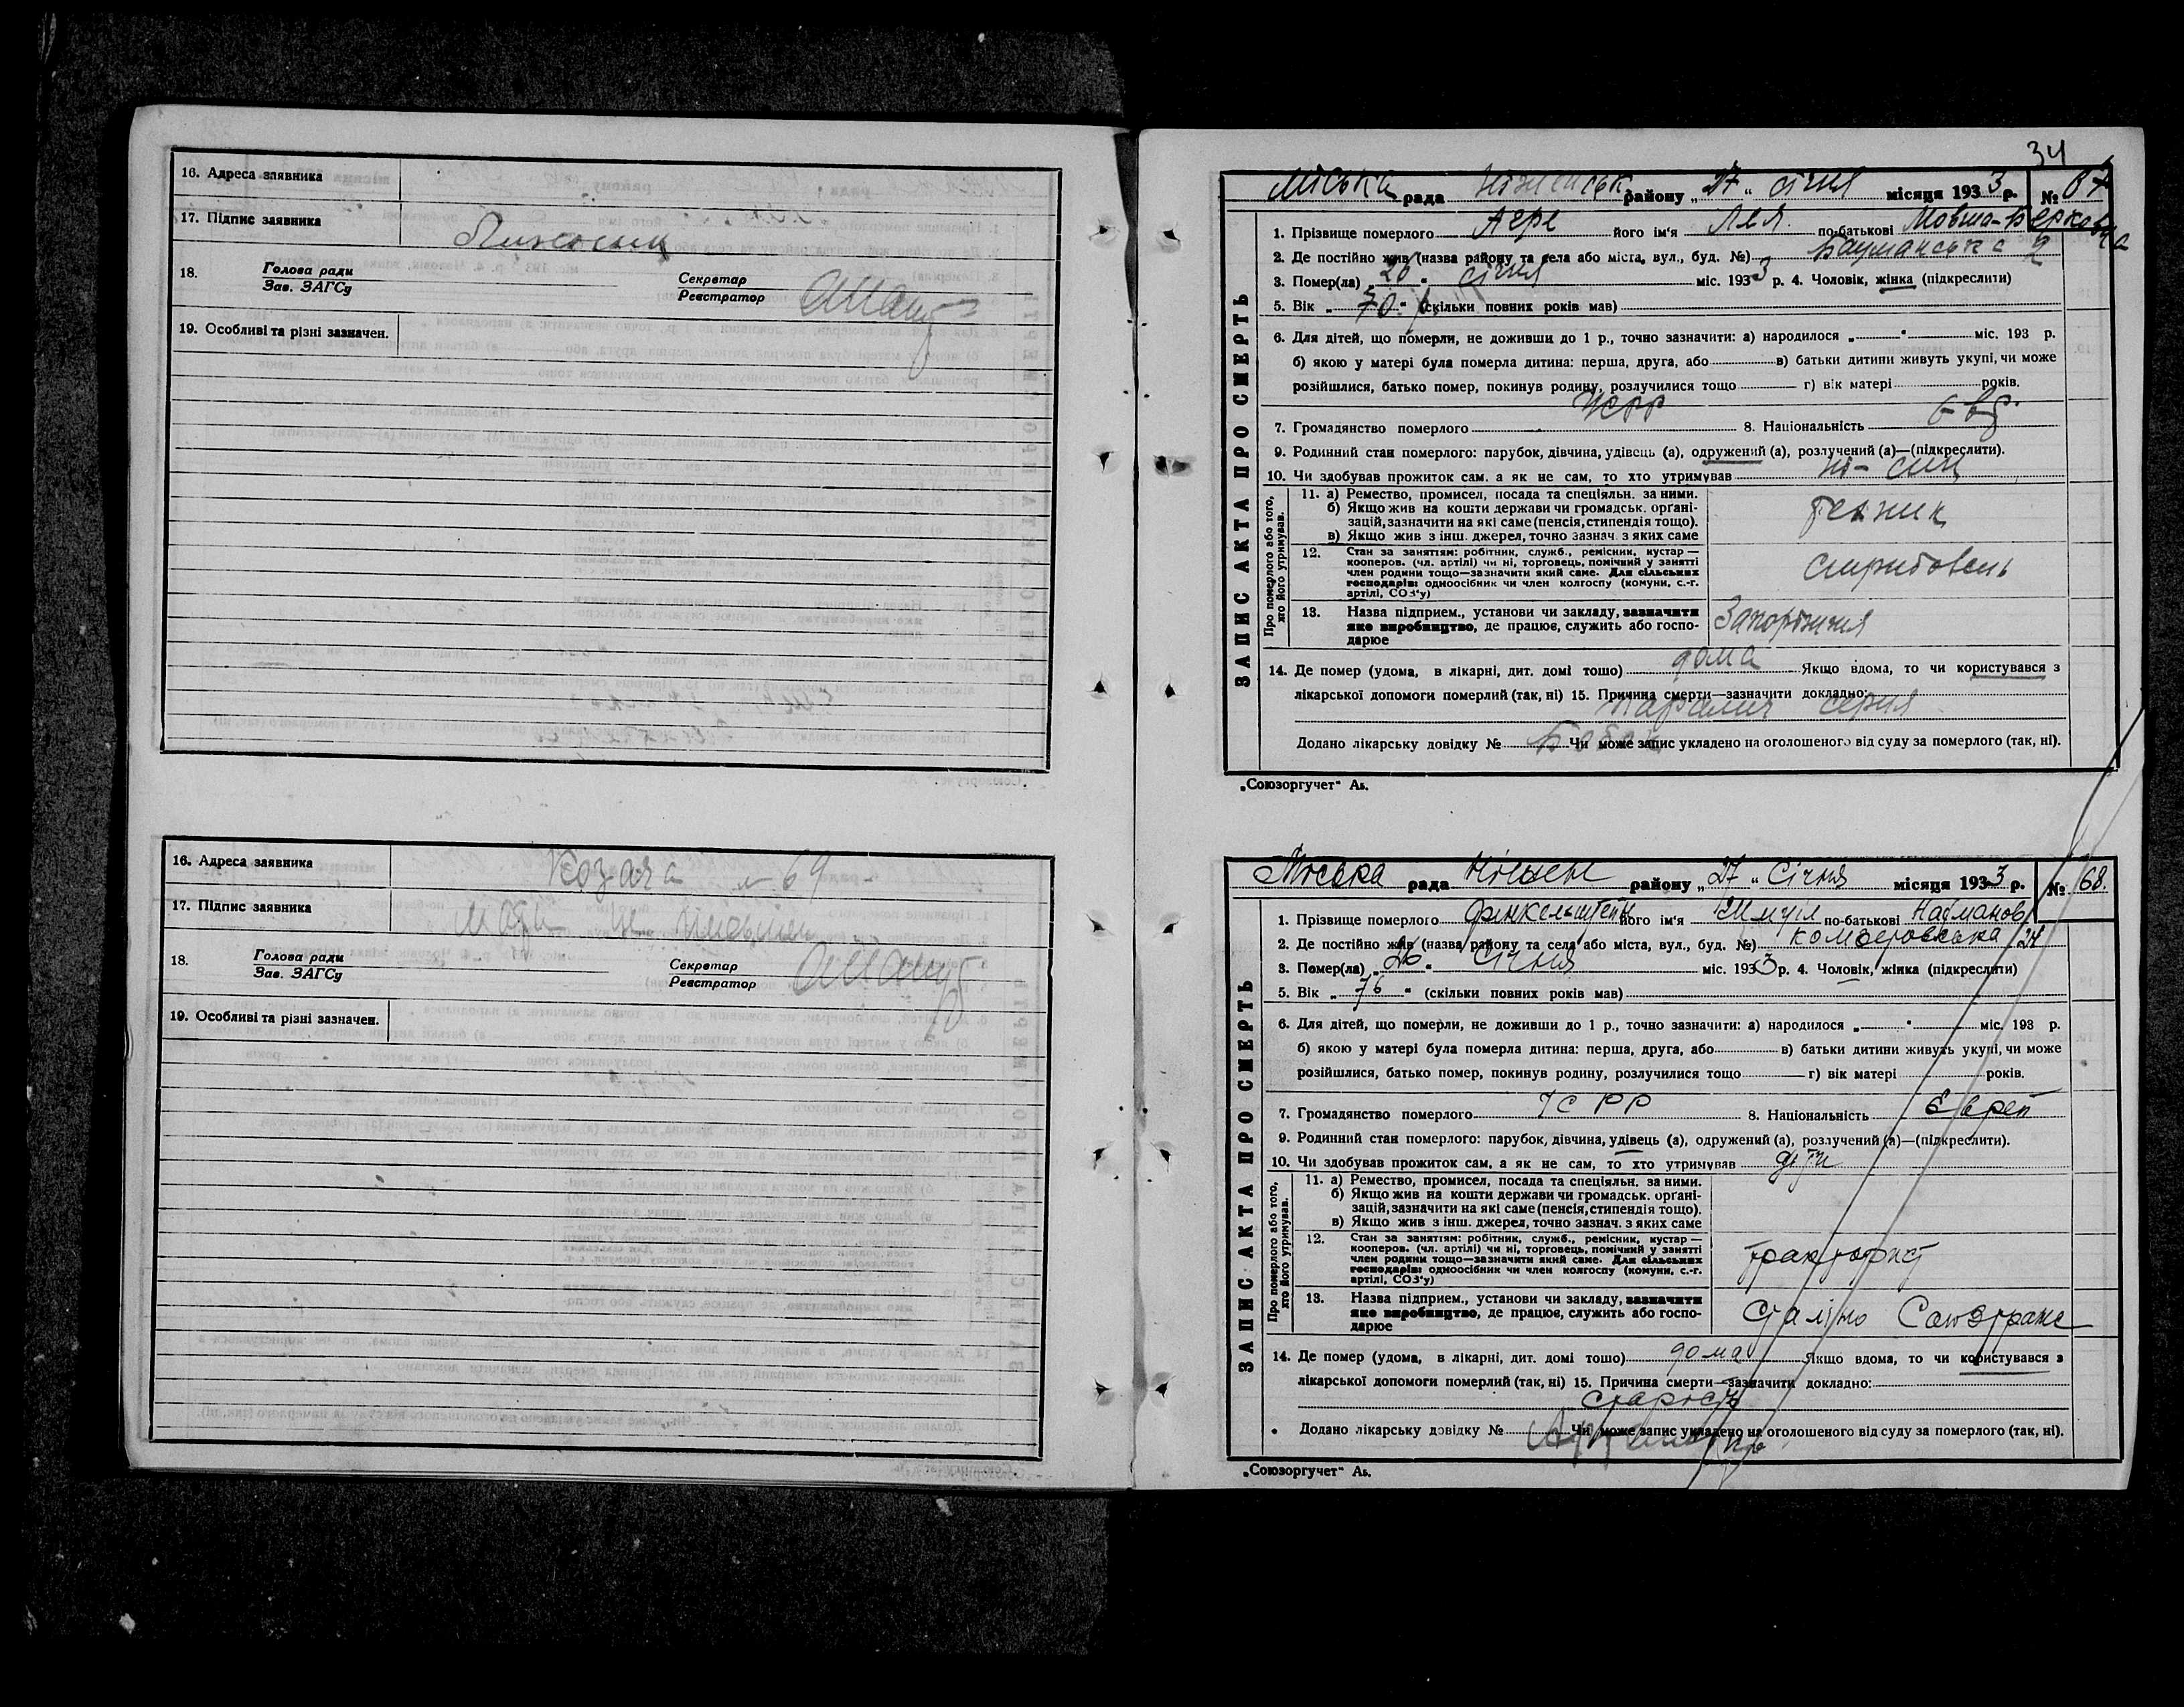 16. Адреса заявника
17. Підпис заявника
18. Голова ради
Зав. ЗАГСу
Секретар
Реєстратор
19. Особливі та різні зазначен.
16. Адреса заявника Козача № 69
17. Підпис заявника
18. Голова ради
Зав. ЗАГСу
Секретар
Реєстратор
19. Особливі та різні зазначен.
34
ЗАПИС АКТА ПРО СМЕРТЬ
Міська рада Ніжинськ району „27“ січня місяця 1933 р. № 67
1. Прізвище померлого його ім'я Лея по-батькові Мовша-Беркова
2. Де постійно жив (назва району та села або міста, вул., буд. №) Бауманська 2
3. Помер(ла) „20“ січня міс. 1933 р. 4. Чоловік, жінка (підкреслити)
5. Вік „70“ (скільки повних років мав)
6. Для дітей, що померли, не доживши до 1 р., точно зазначити: а) народилося „ “ міс. 193 р.
б) якою у матері була померла дитина: перша, друга, або в) батьки дитини живуть укупі, чи може
розійшлися, батько помер, покинув родину, розлучилися тощо г) вік матері років.
7. Громадянство померлого УСРР 8. Національність євр.
9. Родинний стан померлого: парубок, дівчина, удівець (а), одружений (а), розлучений (а)—(підкреслити).
10. Чи здобував прожиток сам, а як не сам, то хто утримував ні - син
Про померлого або того, хто його утримував.
11. а) Ремество, промисел, посада та спеціяльн. за ними.
б) Якщо жив на кошти держави чи громадськ. орґані-
зацій, зазначити на які саме (пенсія, стипендія тощо).
в) Якщо жив з інш. джерел, точно зазнач. з яких саме
технік
12. Стан за заняттям: робітник, служб., ремісник, кустар —
кооперов. (чл. артілі) чи ні, торговець, помічний у занятті
член родини тощо—зазначити який саме. Для сільських
господарів: одноосібник чи член колгоспу (комуни, с.-г.
артілі, СОЗ'у)
13. Назва підприєм., установи чи закладу, зазначити
яке виробництво, де працює, служить або госпо-
дарює
Запоріжжя
14. Де помер (удома, в лікарні, дит. домі тощо) дома Якщо вдома, то чи користувався з
лікарської допомоги померлий (так, ні) 15. Причина смерти—зазначити докладно:
параліч серця
Додано лікарську довідку № Чи може запис укладено на оголошеного від суду за померлого (так, ні).
„Союзоргучет“ А₅.
ЗАПИС АКТА ПРО СМЕРТЬ
Міська рада Ніжен району „27“ Січня місяця 1933 р. № 68.
1. Прізвище померлого Финкельштейн його ім'я Шмуіл по-батькові Найманов
2. Де постійно жив (назва району та села або міста, вул., буд. №) 24
3. Помер(ла) „26“ Січня міс. 1933 р. 4. Чоловік, жінка (підкреслити)
5. Вік „76“ (скільки повних років мав)
6. Для дітей, що померли, не доживши до 1 р., точно зазначити: а) народилося „ “ міс. 193 р.
б) якою у матері була померла дитина: перша, друга, або в) батьки дитини живуть укупі, чи може
розійшлися, батько помер, покинув родину, розлучилися тощо г) вік матері років.
7. Громадянство померлого УСРР 8. Національність Єврей
9. Родинний стан померлого: парубок, дівчина, удівець (а), одружений (а), розлучений (а)—(підкреслити).
10. Чи здобував прожиток сам, а як не сам, то хто утримував діти
Про померлого або того, хто його утримував.
11. а) Ремество, промисел, посада та спеціяльн. за ними.
б) Якщо жив на кошти держави чи громадськ. орґані-
зацій, зазначити на які саме (пенсія, стипендія тощо).
в) Якщо жив з інш. джерел, точно зазнач. з яких саме
12. Стан за заняттям: робітник, служб., ремісник, кустар —
кооперов. (чл. артілі) чи ні, торговець, помічний у занятті
член родини тощо—зазначити який саме. Для сільських
господарів: одноосібник чи член колгоспу (комуни, с.-г.
артілі, СОЗ'у)
тракторист
13. Назва підприєм., установи чи закладу, зазначити
яке виробництво, де працює, служить або госпо-
дарює
Сталіно Союзтранс
14. Де помер (удома, в лікарні, дит. домі тощо) дома Якщо вдома, то чи користувався з
лікарської допомоги померлий (так, ні) 15. Причина смерти—зазначити докладно:
старость
Додано лікарську довідку № Чи може запис укладено на оголошеного від суду за померлого (так, ні).
„Союзоргучет“ А₅.